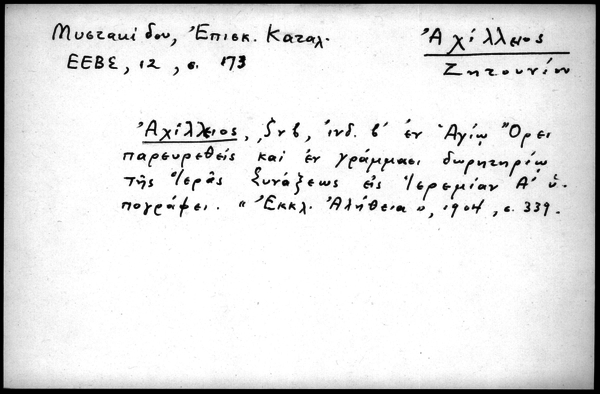 Μυστακίδου, Ἐπισκ. Καταλ.
ΕΕΒΣ, 12, σ. 173
Ἀχίλλειος
Ζητουνίου
Ἀχίλλειος, ͵ζνβ, ἰνδ. β´ ἐν Ἁγίῳ Ὄρει
παρευρεθεὶς καὶ ἐν γράμμασι δωρητηρίῳ
τῆς Ἱερᾶς Συνάξεως εἰς Ἱερεμίαν Α´ ὑ-
πογράφει. «Ἐκκλ. Ἀλήθεια», 1904, σ. 339.